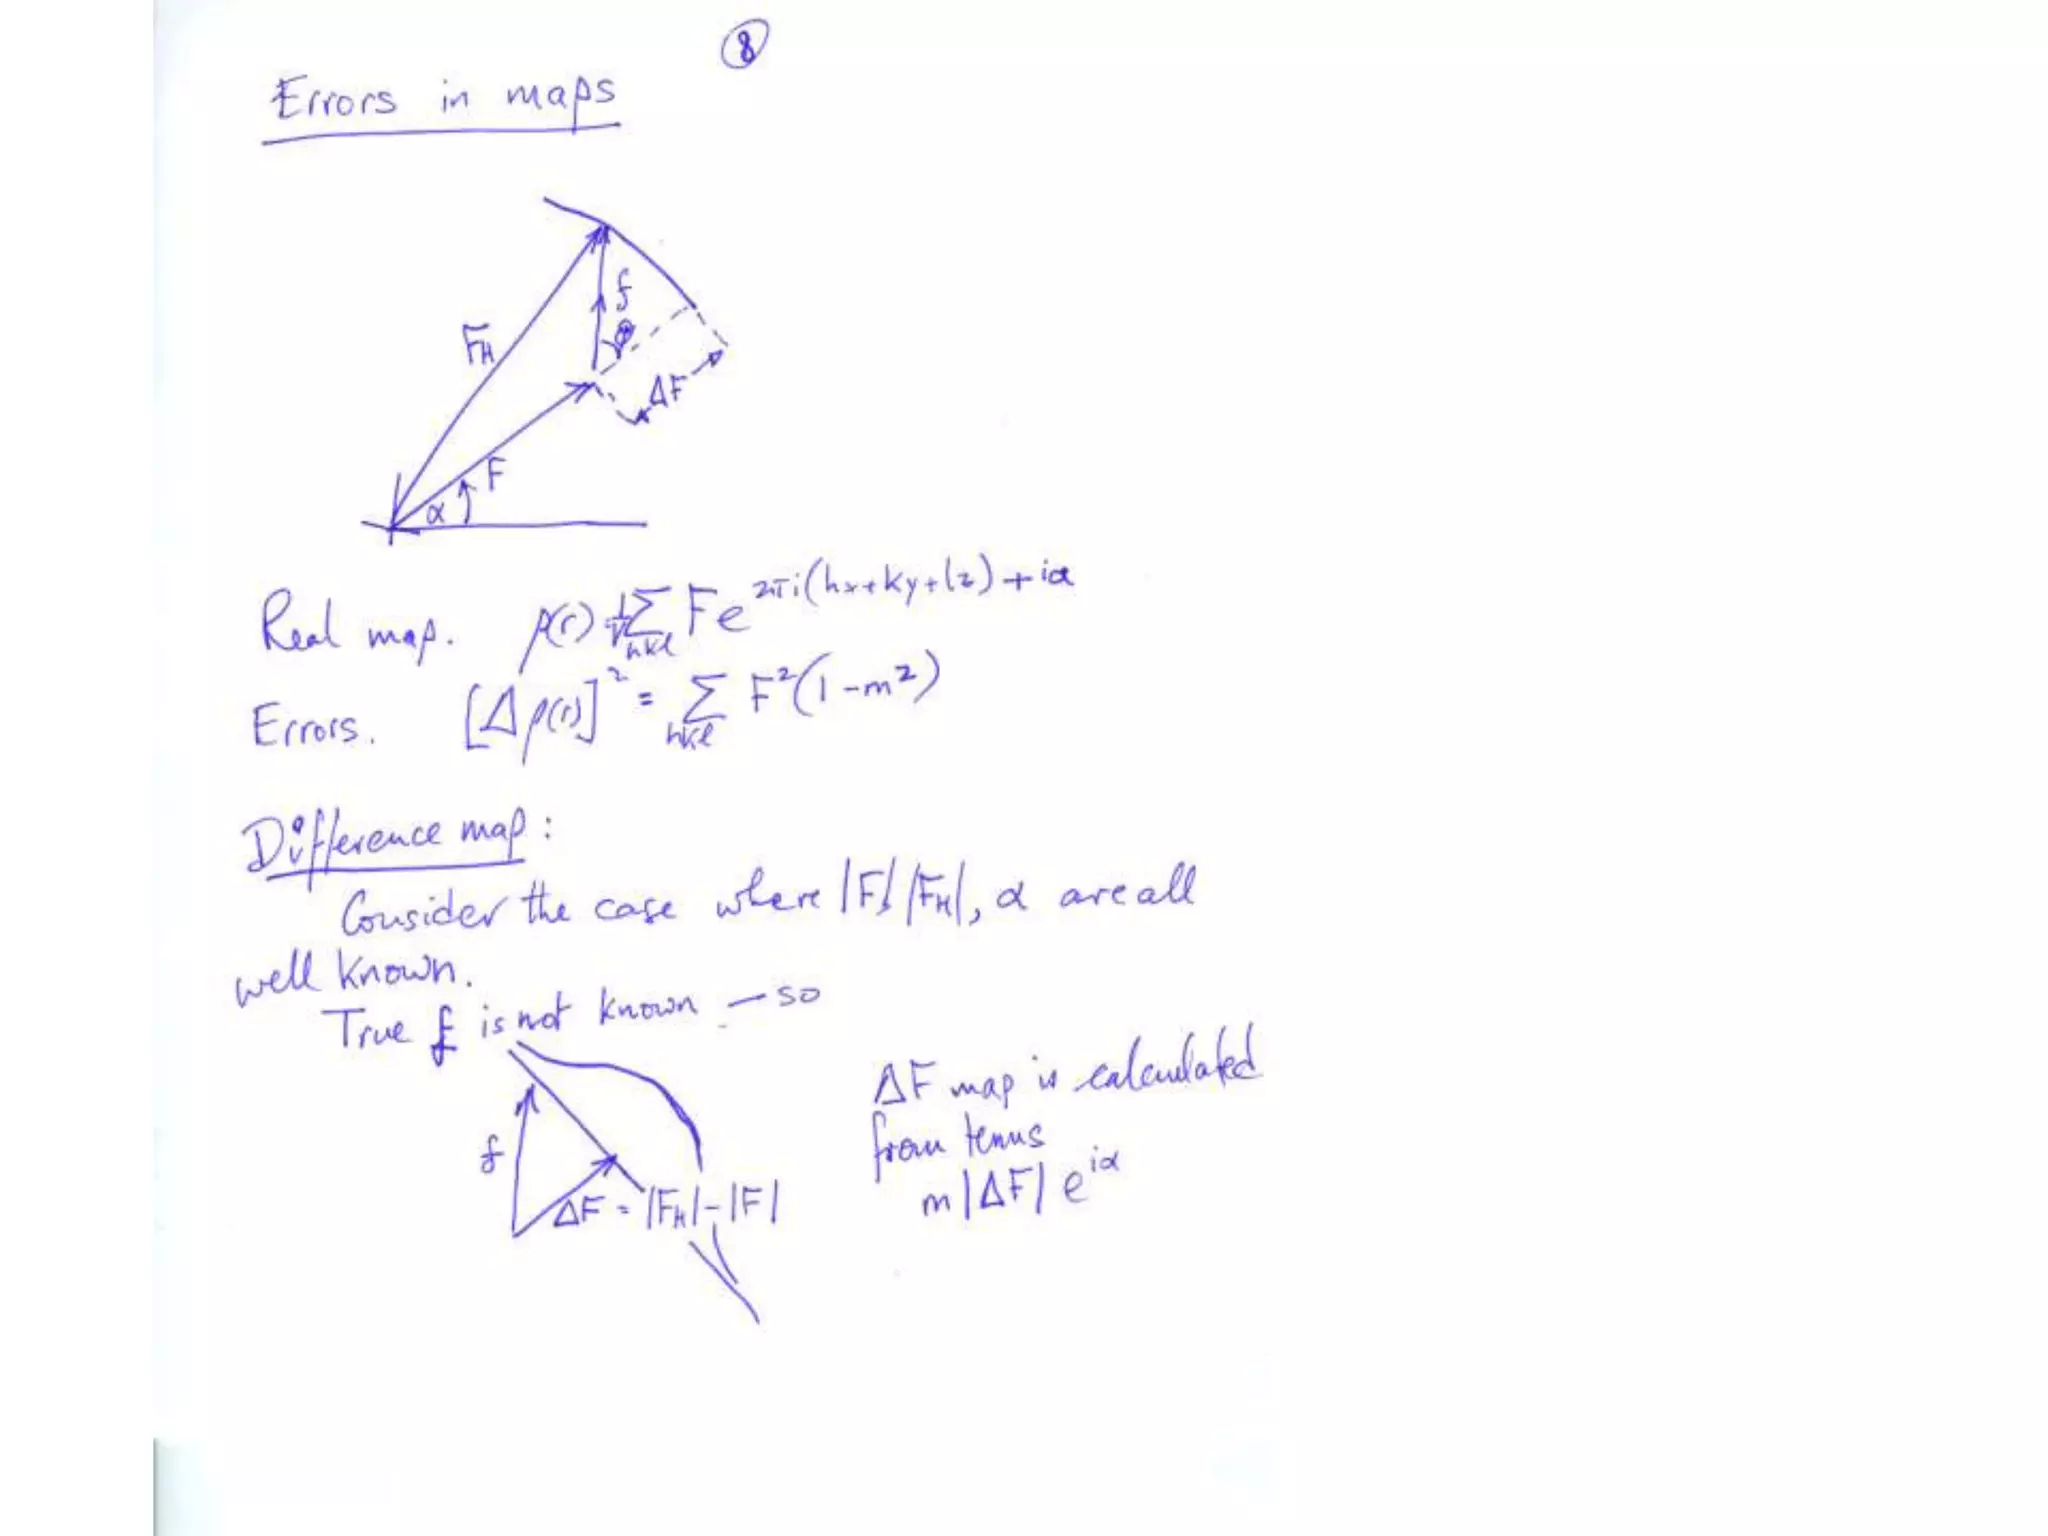 8
Errors in maps
f
F_H
θ
ΔF
F
α
Real map. ρ(r) = 1/V Σ_hkl F e^{2πi(hx+ky+lz)+iα}
Errors. [Δρ(r)]² = Σ_hkl F²(1-m²)
Difference map:
Consider the case where |F|, |F_H|, α are all
well known.
True f is not known – so
ΔF map is calculated
from terms
m|ΔF| e^{iα}
f
ΔF = |F_H|-|F|